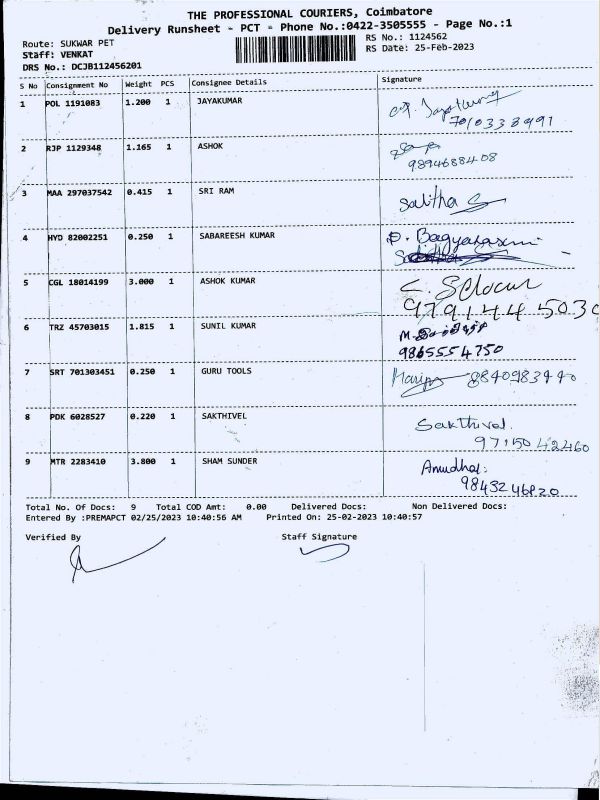 THE PROFESSIONAL COURIERS, Coimbatore
Delivery Runsheet - PCT - Phone No.:0422-3505555 - Page No.:1
Route: SUKWAR PET
RS No.: 1124562
Staff: VENKAT
RS Date: 25-Feb-2023
DRS No.: DCJB112456201
S No Consignment No Weight PCS Consignee Details Signature
1 POL 1191083 1.200 1 JAYAKUMAR
7010338991
2 RJP 1129348 1.165 1 ASHOK
9894688408
3 MAA 297037542 0.415 1 SRI RAM Salitha S
4 HYD 82002251 0.250 1 SABAREESH KUMAR
5 CGL 18014199 3.000 1 ASHOK KUMAR
6 TRZ 45703015 1.815 1 SUNIL KUMAR
9865554750
7 SRT 701303451 0.250 1 GURU TOOLS
8 PDK 6028527 0.220 1 SAKTHIVEL Sakthivel.
97150 42460
9 MTR 2283410 3.800 1 SHAM SUNDER
Total No. Of Docs: 9 Total COD Amt: 0.00 Delivered Docs: Non Delivered Docs:
Entered By :PREMAPCT 02/25/2023 10:40:56 AM Printed On: 25-02-2023 10:40:57
Verified By Staff Signature